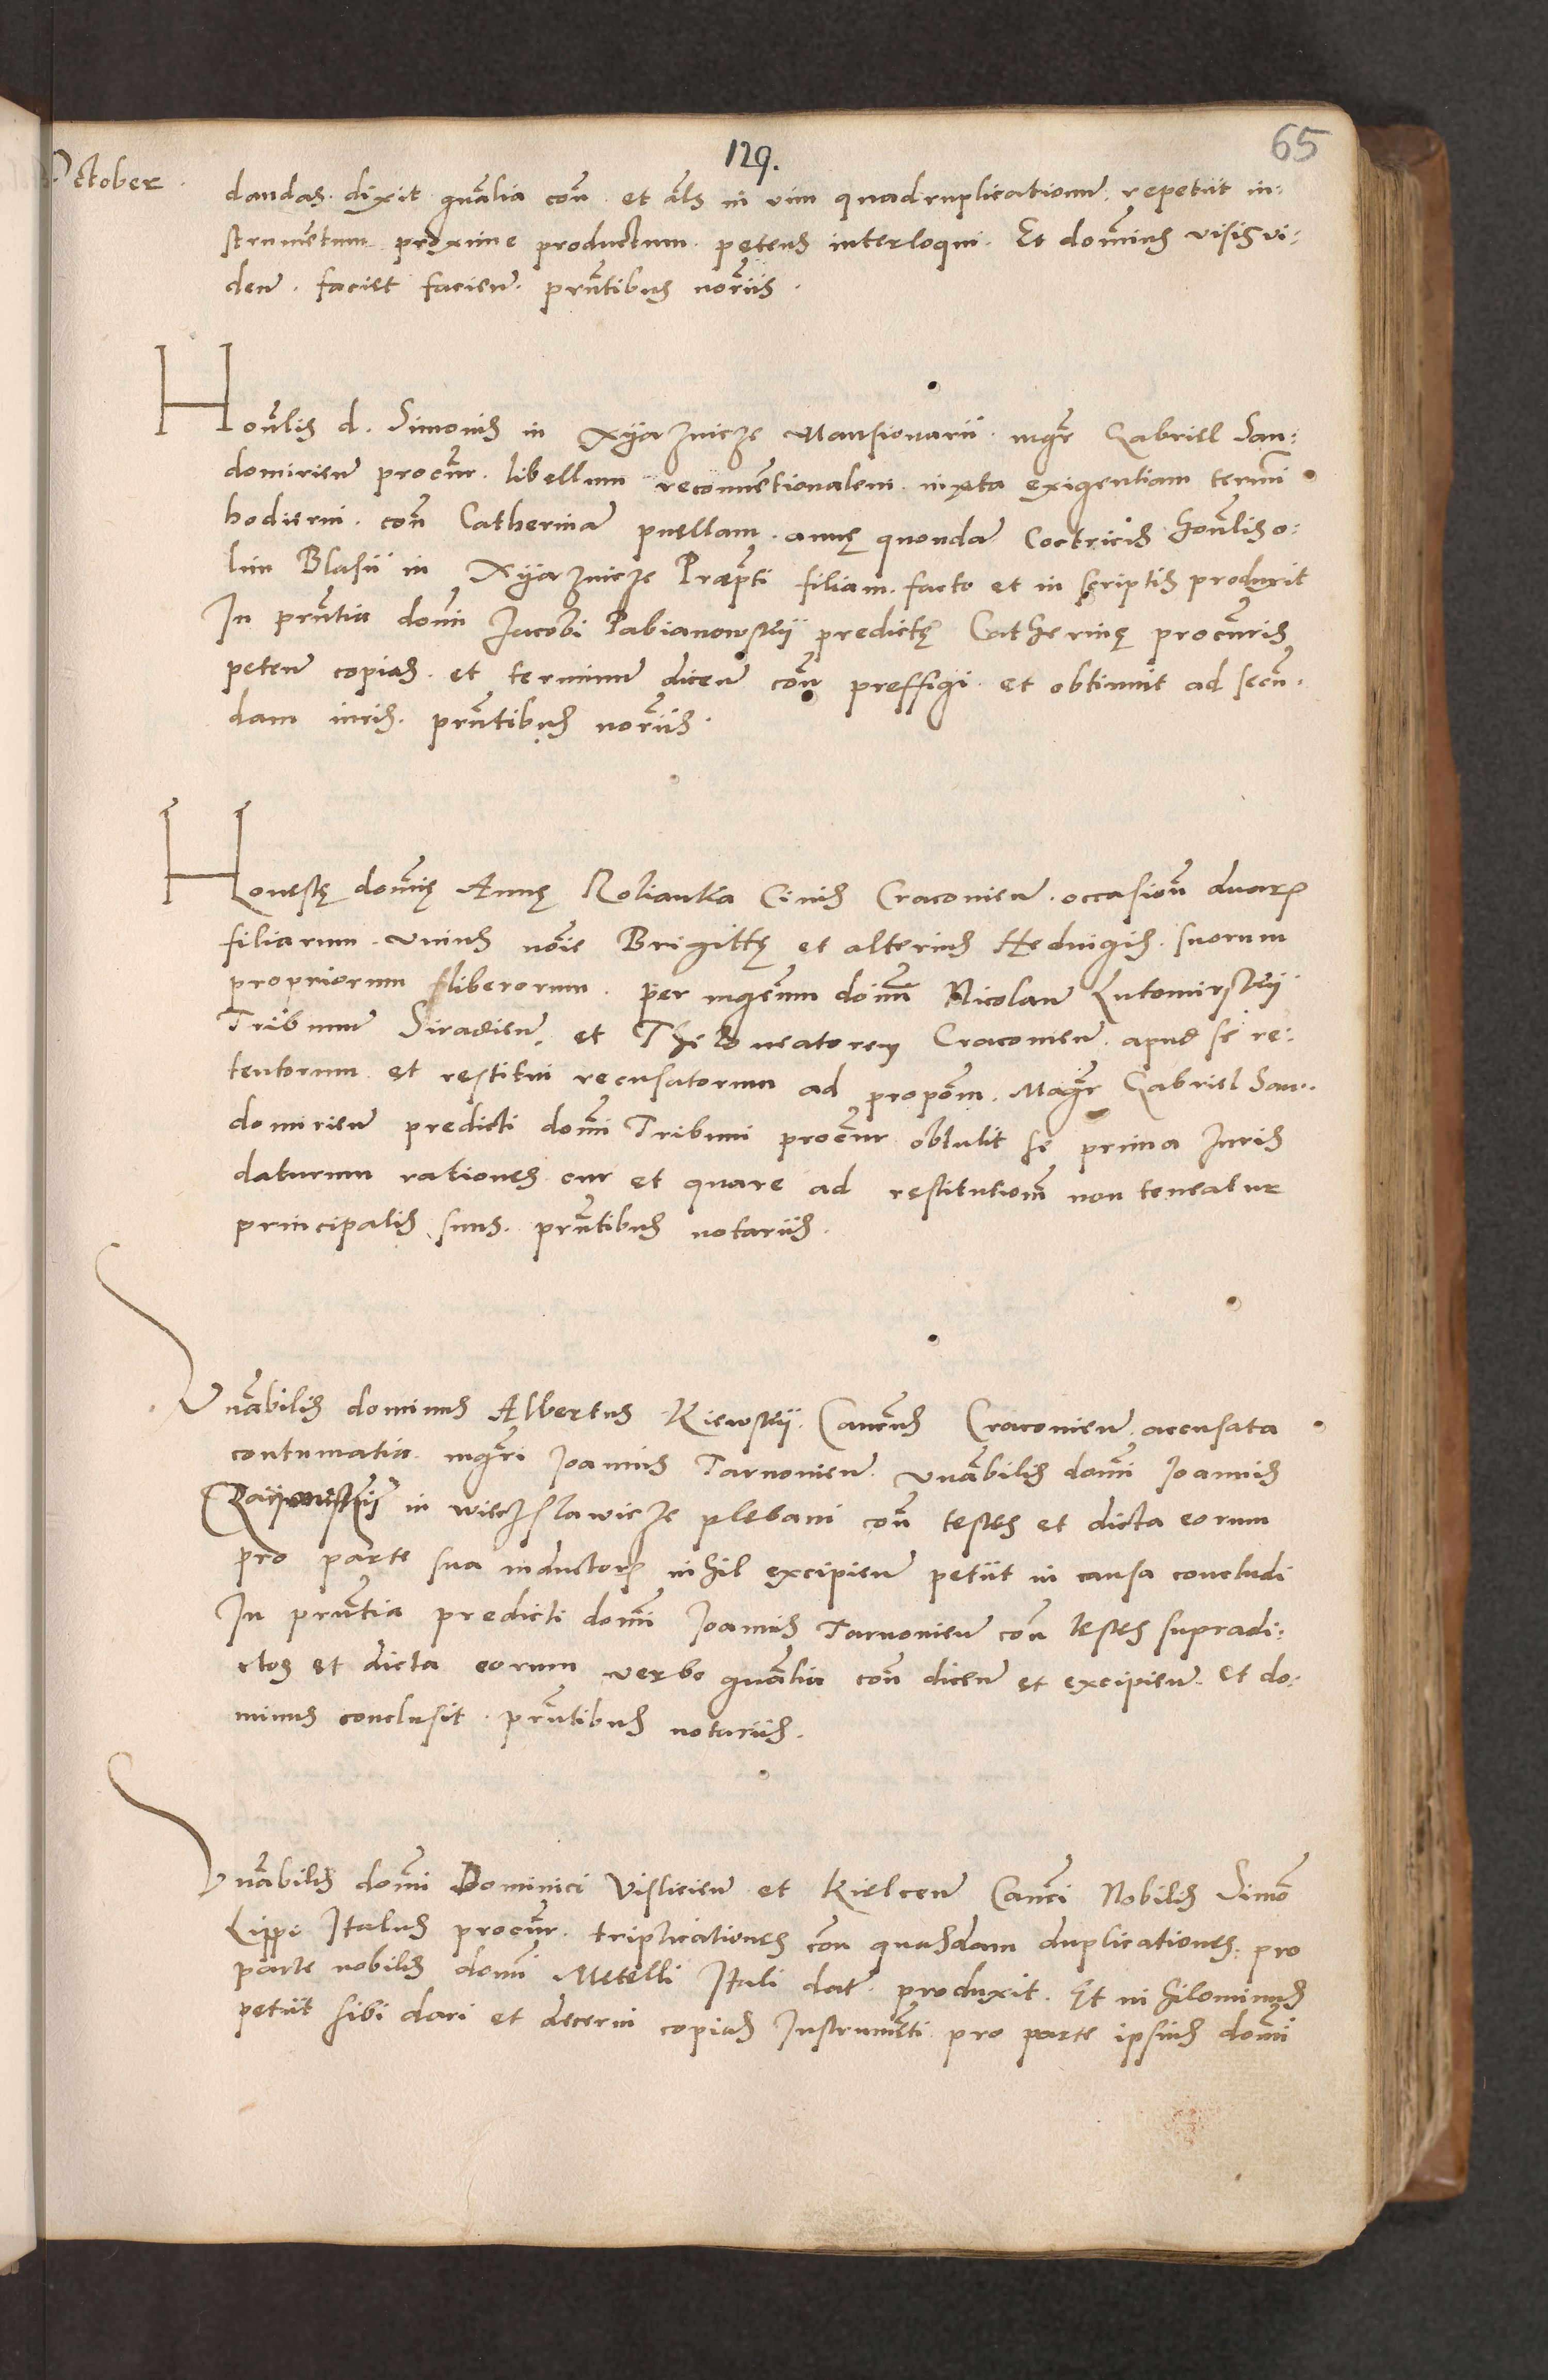 129.
65
October.
dandas. dixit gn̄alia con̄ et als in vim quadruplicationum. repetiit in:
strumentum proxime productum. petens interloqui. Et dom̄inus visis vi:
den̄. faciet facien̄. prn̄tibus nor̄iis.
Hon̄lis d. Simonis in Xyaznicze Mansionarii. mgr̄ Gabriel San:
domirien̄ procūr. libellum reconuen̄tionalem. iuxta exigentiam termī
hodierni. con̄ Catherinā puellam. annę quondā Coctricis hon̄lis o:
lim Blasii in Xyaznicze Præp̄ti filiam. facto et in scriptis produxit
In prn̄tia dom̄i Jacobi Pabianowskij predictę Catherinę procūris
peten̄ copias. et terminū dicen̄ con̄ preffigi. et obtinuit ad secūn:
dam iuris. prn̄tibus nor̄iis.
Honestę dom̄ię Annę Rolianka Ciuis Cracouien̄. occasion̄ duarꝝ
filiarum. vnius nōie Brigittę et alterius Heduigis. suorum
propriorum liberorum. per mgcūm dom̄ Nicolaū Lutomirskij
Tribunū Siradien̄. et Theloneatorem Cracouien̄. apud se re:
tentorum et restitui recusatorum ad propōm. Magr̄ Gabriel San:
domirien̄ predicti dom̄i Tribuni procūr obtulit se prima Iuris
daturum rationes cur et quare ad restitutiom̄ non teneatur
principalis suus. prn̄tibus notariis.
Vn̄abilis dominus Albertus Kiewskij. Can̄cus Cracouien̄. accusata
contumatia. mgr̄i Joannis Tarnouien̄. vn̄abilis dom̄i Joannis
in wieczslawicze plebani con̄ testes et dicta eorum
pro parte sua inductorꝝ nihil excipien̄ petiit in causa concludi
In prn̄tia predicti dom̄i Joannis Tarnouien̄ con̄ testes supradi:
ctos et dicta eorum verbo gn̄alia con̄ dicen̄ et excipien̄. Et do:
minus conclusit. prn̄tibus notariis.
Vn̄abilis dom̄i Dominici Vislicien̄ et Kielcen̄ Can̄ci Nobilis Simō
Lippi Italus procūr. triplicationes con̄ quasdam duplicationes. pro
parte nobilis dom̄i Metelli Itali dat̄. produxit. Et nihilominus
petiit sibi dari et decerni copias Instrumēti pro parte ipsius dom̄i